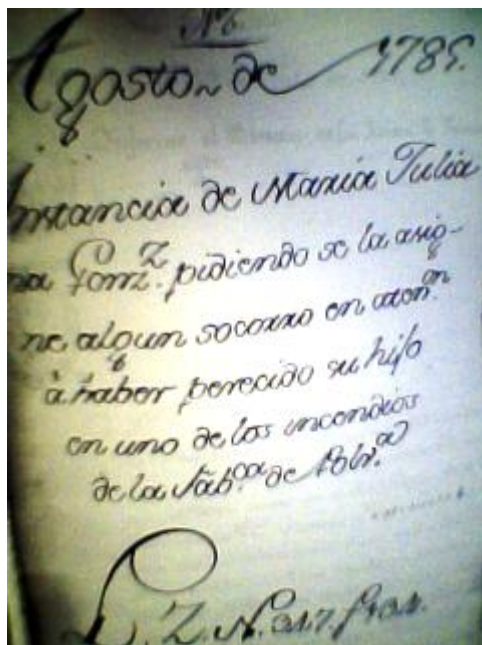 Nº 6.
Agosto de 1785.
Instancia de Maria Julia
na Gomz. pidiendo se la asig-
ne algun socorro en aten.on
à haber perecido su hijo
en uno de los incendios
de la Fab.ca de Polv.a
L. Z. N.